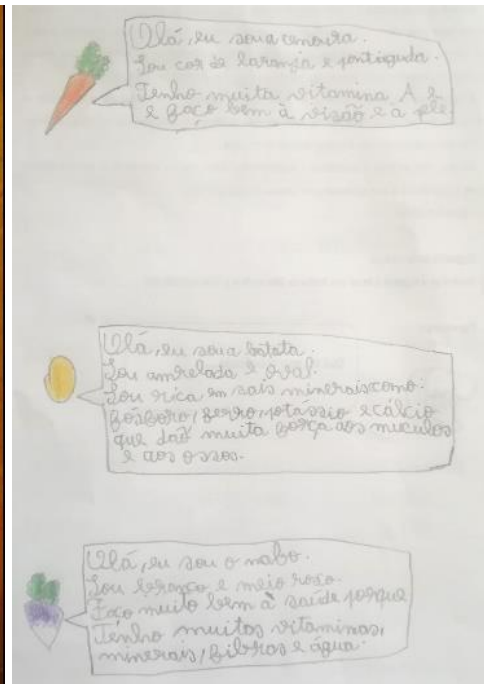 Olá, eu sou a cenoura.
Sou cor de laranja e pontiaguda.
Tenho muita vitamina A e
e faço bem à visão e a pele
Olá, eu sou a batata.
Sou amrelada e oval.
Sou rica em sais minerais como:
fósforo, ferro, potássio e cálcio
que dão muita força aos muculos
e aos ossos.
Olá, eu sou o nabo.
Sou branco e meio roxo.
Faço muito bem à saúde porque
Tenho muitos vitaminas,
minerais, fibras e água.